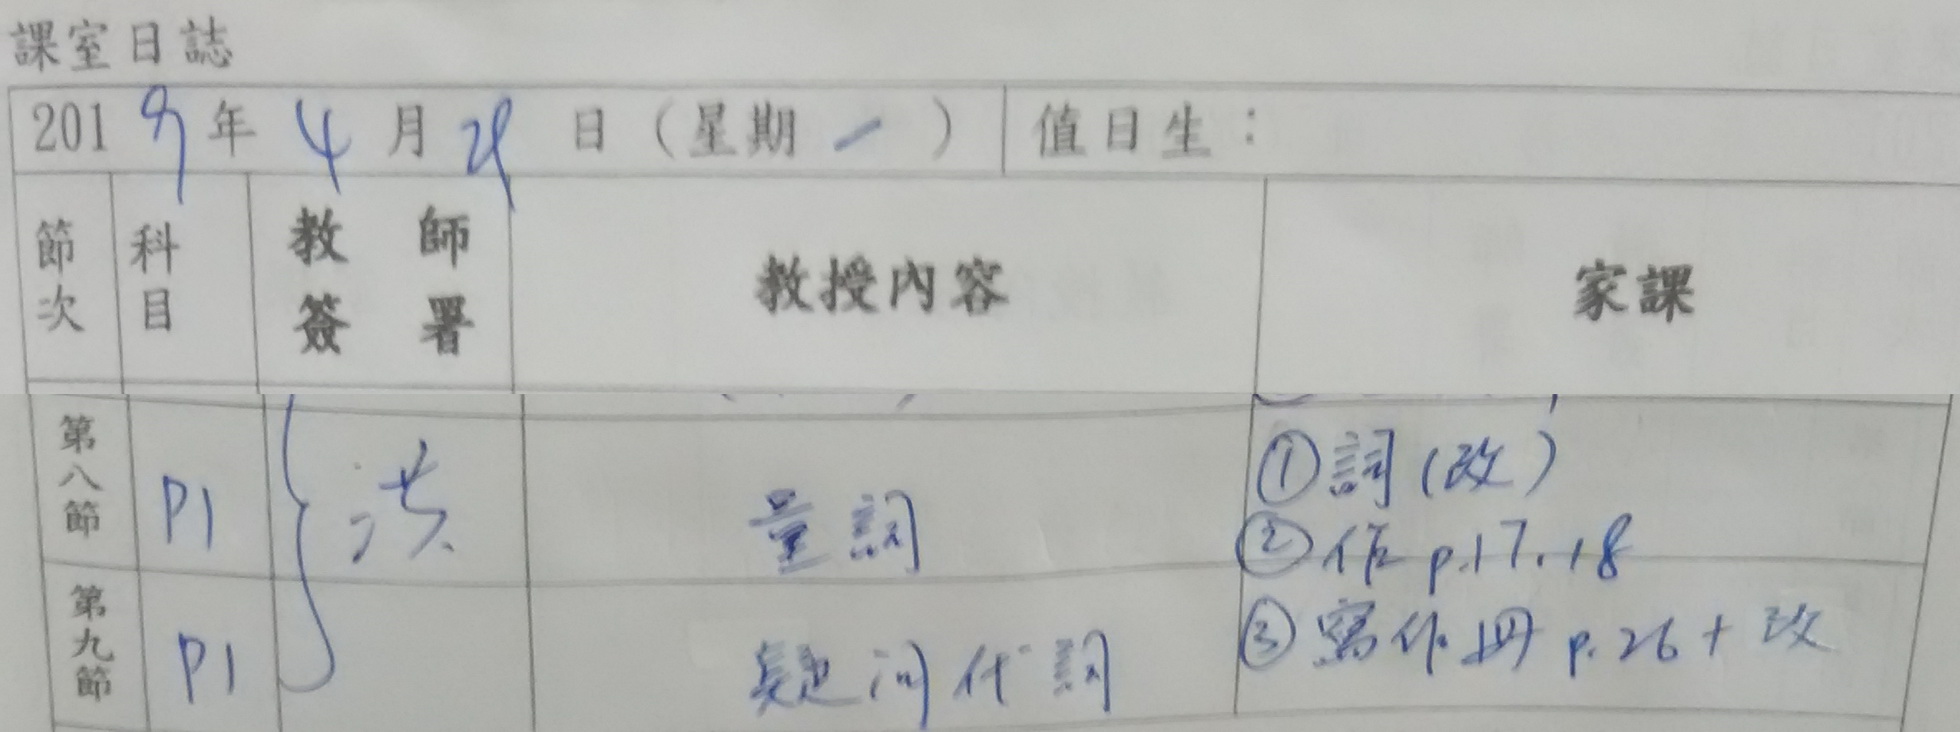 課室日誌
2019年4月29日（星期一）值日生：
節次 科目 教師簽署 教授內容 家課
第八節 P1 洪 量詞 ①詞(改)
②作 p.17.18
第九節 P1 疑问代詞 ③寫作册 p.26+改